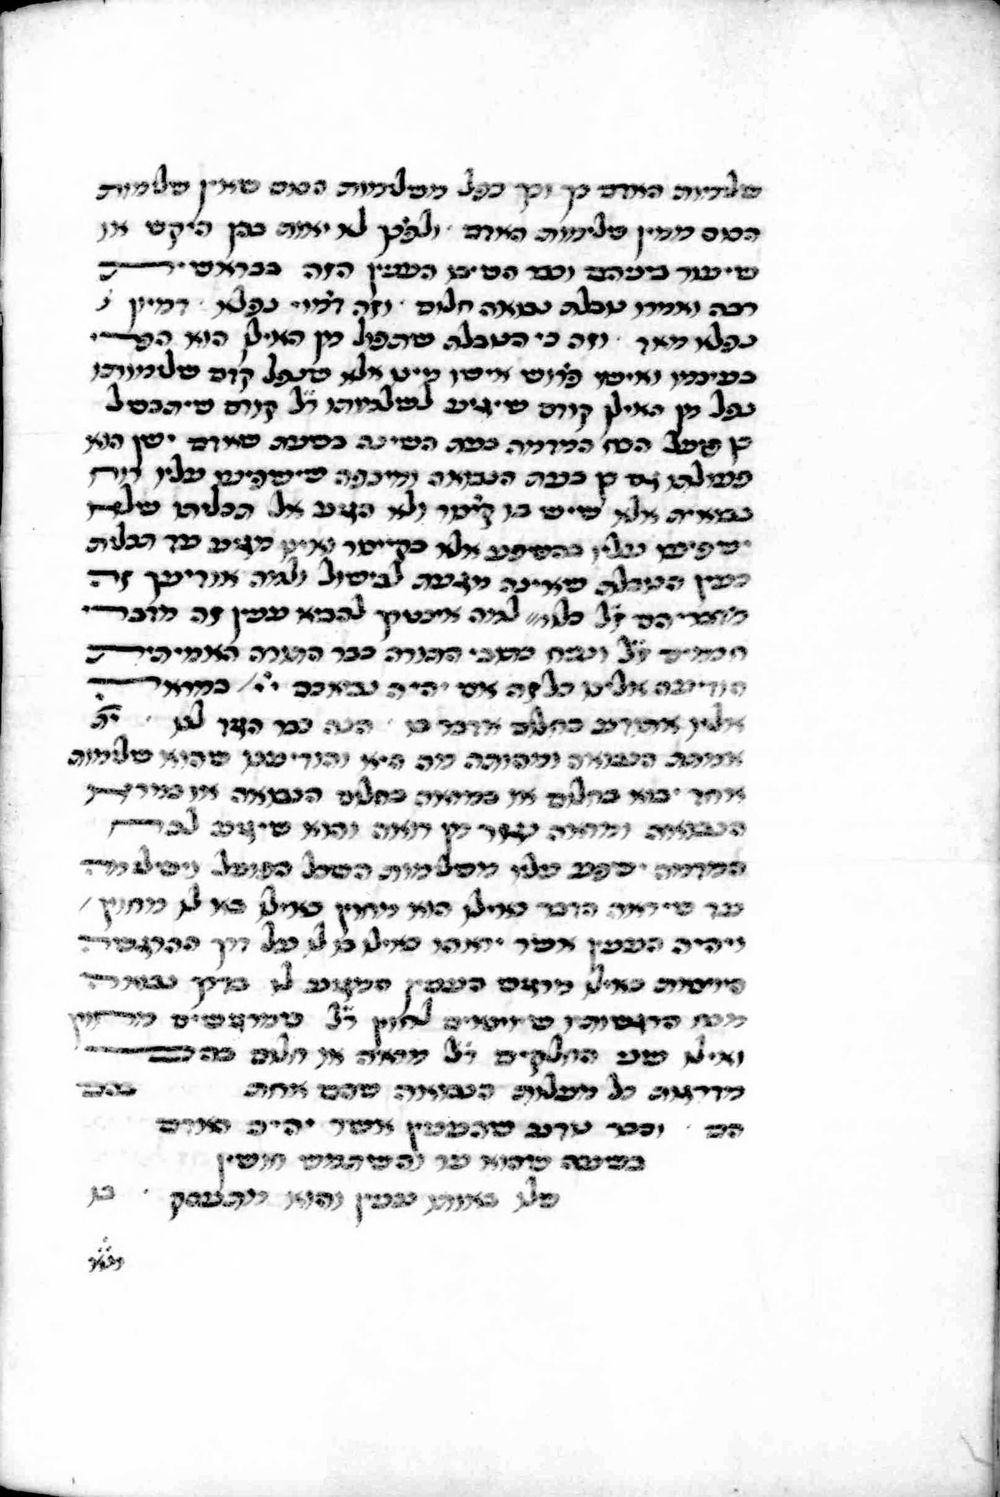 שלמות האדם כך וכך כפל משלמות הסוס שאין שלמות
הסוס ממין שלימות האדם ולפיכך לא יאמת בהן היקש או
שיעור ביניהם וכבר השיבו הענין הזה בבראשית
רבה ואמרו נובלת נבואה חלום וזה דמוי נפלא דמיון
נפלא מאד וזה כי הנובלת שתפול מן האילן הוא הפרי
בעינמו ואישו פירוש אישו מינו אלא שנפל קודם שלימותו
נפל מן האילן קודם שיגיע לשלמותו ר״ל קודם שיתבשל
כן פועל הכח המדמה בעת השינה בשעת שאדם ישן הוא
פעולתו גם כן בעת הנבואה ומכפה שישפיע עליו רוח
נבואית אלא שיש בו קיצור ולא הגיע אל תכליתו שלא
ישפיע עליו בהשפע אלא בקיצור ואינו מגיע עד תכלית
כענין הנובלת שאינה מגעת לבישול ולמה אורידך זה
מדבריהם ז״ל כלו׳ למה אצטרך להביא ענין זה מדברי
חכמים ז״ל ונניח כתובי התורה כבר התורה האמיתית
הודיעה אלינו כל זה אם יהיה נביאכם י״י במראה
אליו אתודע בחלום אדבר בו הנה כבר הגיד לנו יי׳
אמתת הנבואה ומהותה מה היא והודיענו שהוא שלמות
אחד יבוא בחלום או במראה בחלום הנבואה או במראה
הנבואה ומראה נגזר מן ראה והוא שיגיע לכח
המדמה ישפע עליו משלמות השכל הפועל וישלימה
עד שיראה הדבר כאילו הוא מחוץ כאילו בא לו מחוץ
ויהיה הענין אשר יראהו כאילו בא לו על דרך ההרגשה
היוצאת כאילו מרגיש הענין המגיע לו בדרך נבואה
מכח הרגשותיו שיוצאים לחוץ ר״ל שמרגישים מחוץ
ואילו שני החלקים ר״ל מראה או חלום בהם
מדרגות כל מעלות הנבואה שהם אחת בהם
הם וכבר נודע שהענין אשר יהיה האדם
בשעה שהוא ער והשתמש חושיו
כלו באותו ענין והוא יתעסק בו